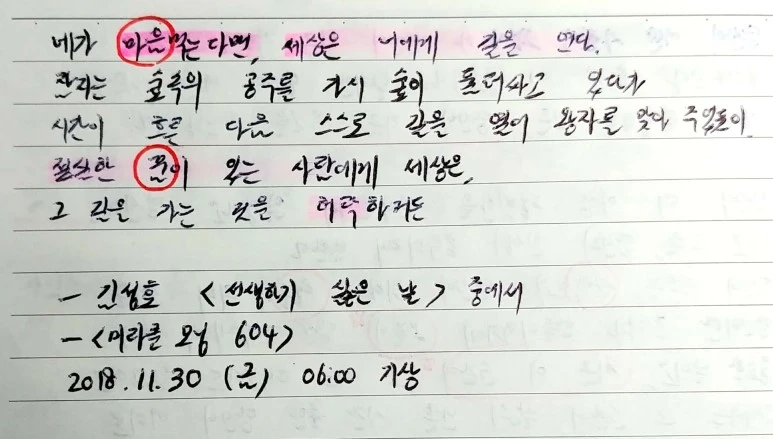 네가 마음먹는다면, 세상은 너에게 길을 연다.
잠자는 숲속의 공주를 가시 숲이 둘러싸고 있다가
시간이 흐른 다음 스스로 길을 열어 왕자를 맞아 주었듯이
절실한 꿈이 있는 사람에게 세상은,
그 길을 가는 것을 허락하거든
- 김성효 <선생하기 싫은 날> 중에서
- <미라클 모닝 604>
2018.11.30 (금) 06:00 기상